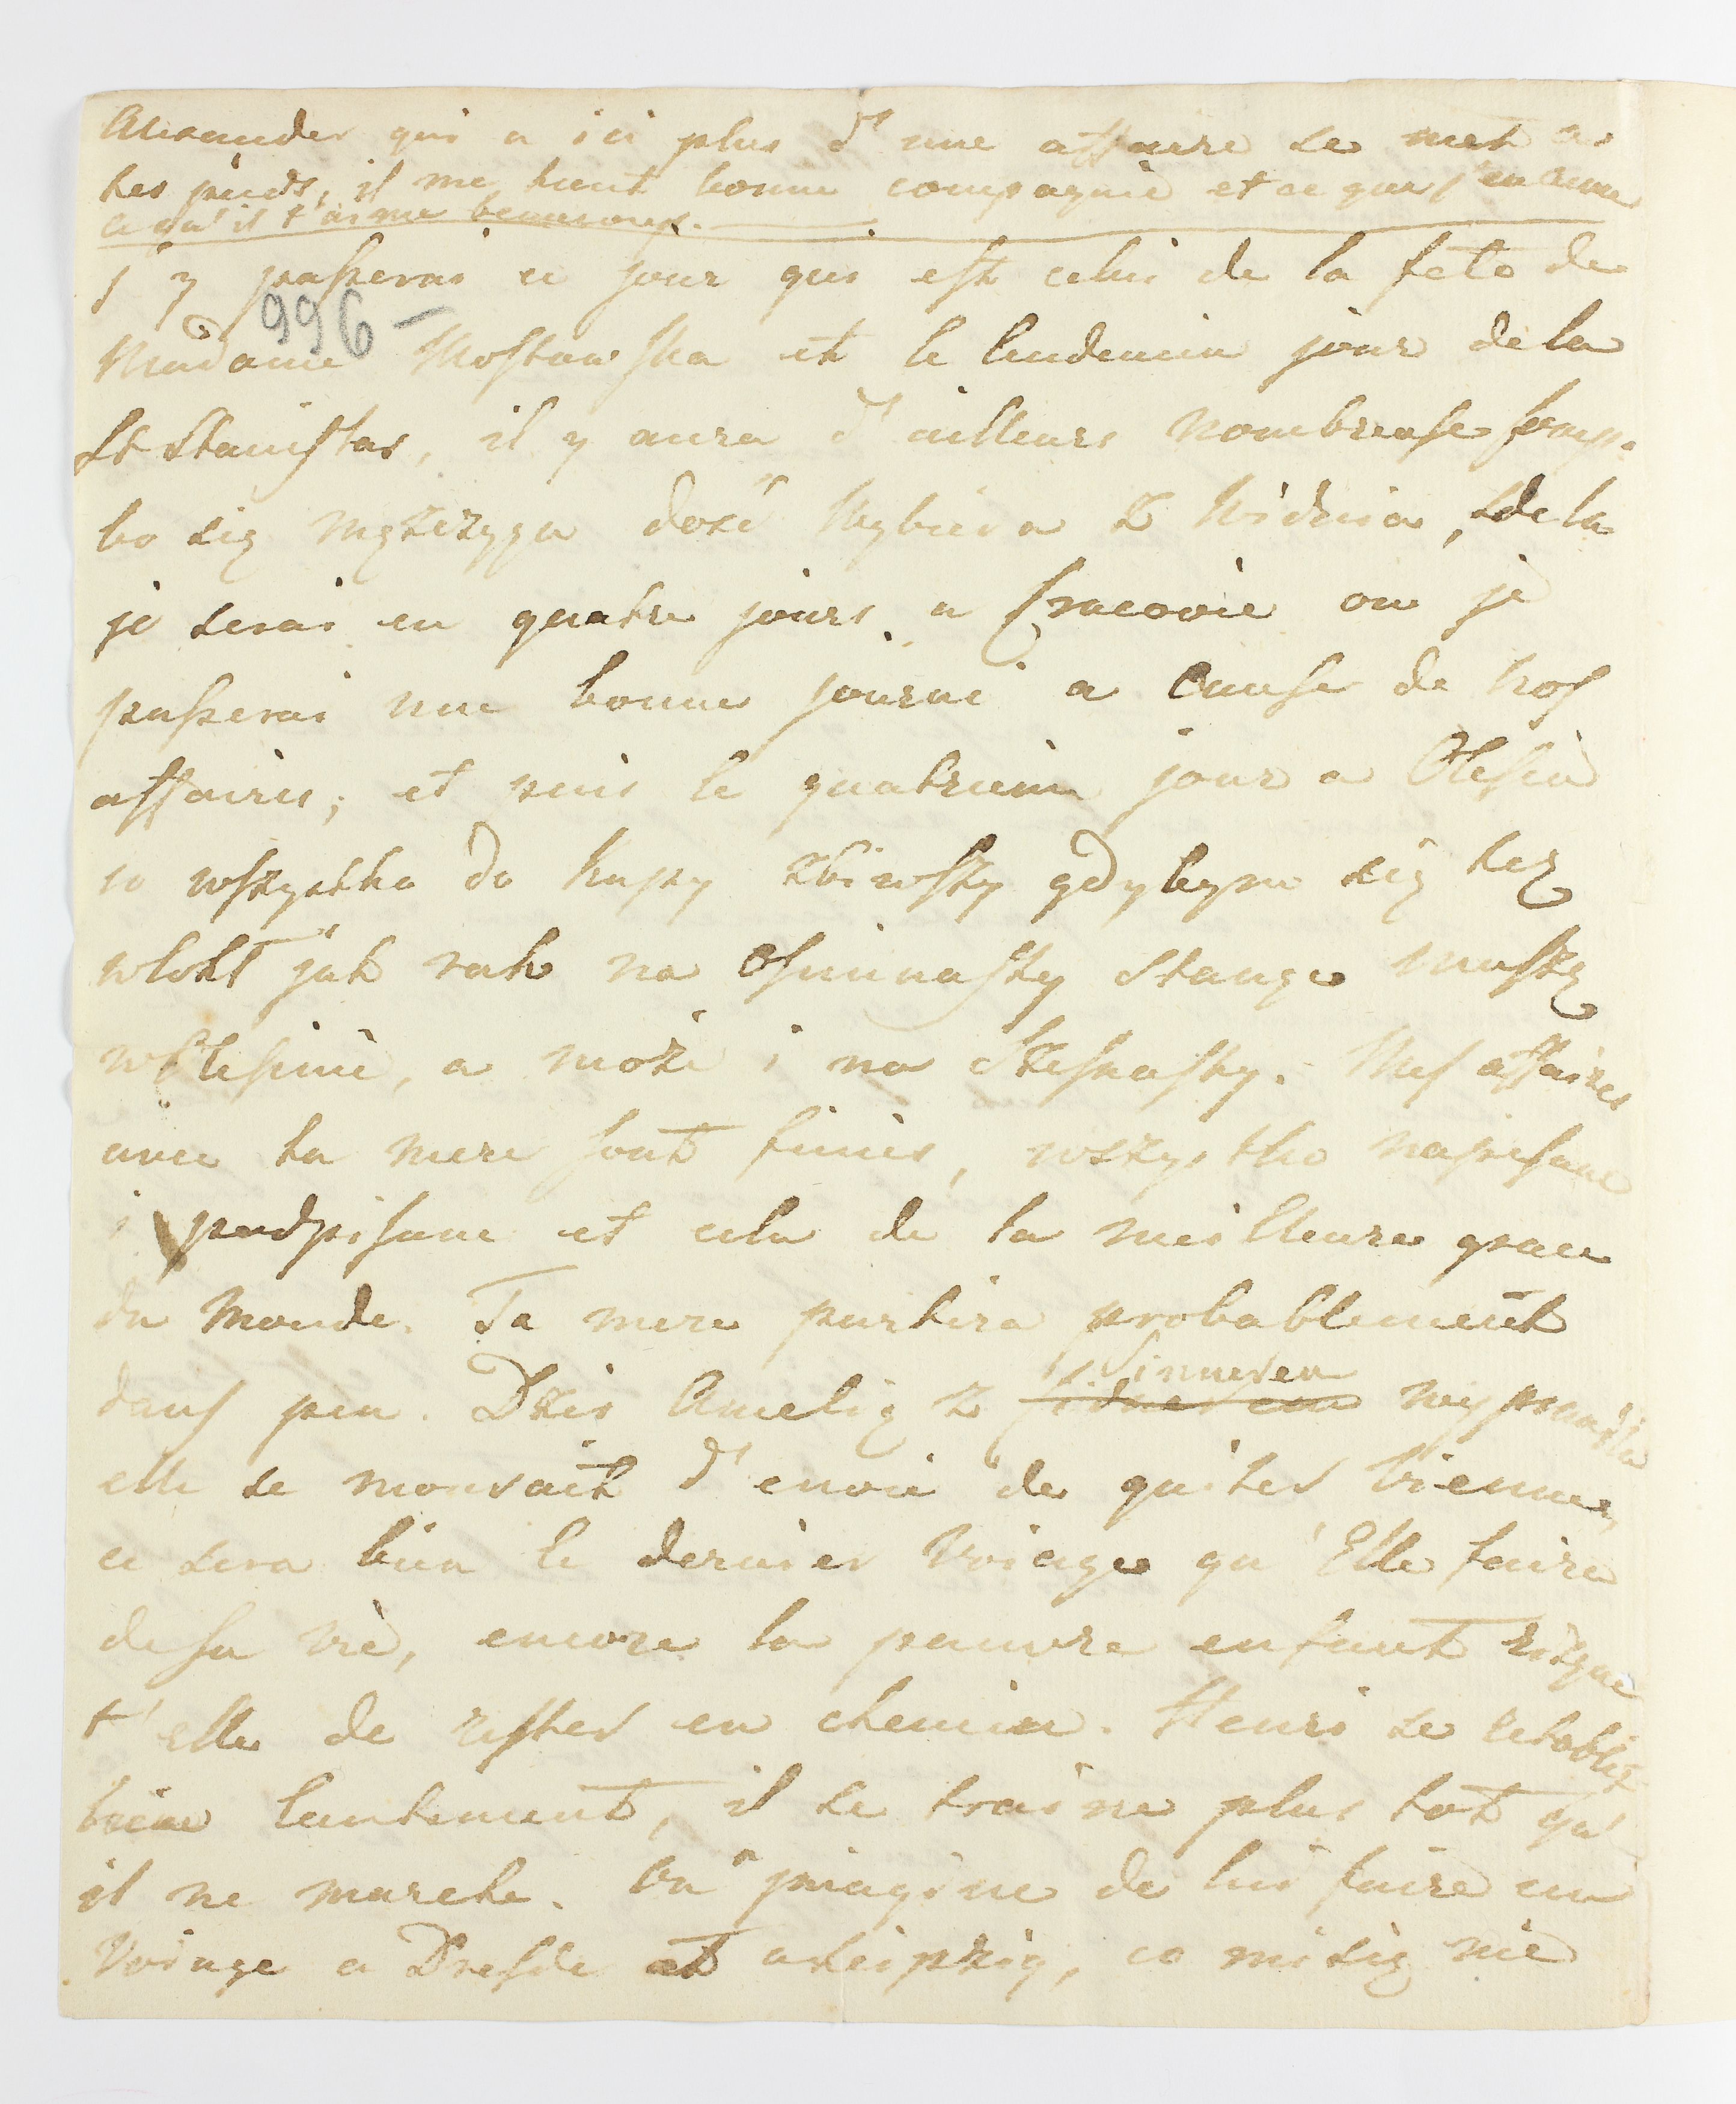 Alexander qui a ici plus d'une affaire se met a
tes pieds, il me tient bonne compagnie et ce que j'en aime
c'qu'il t'aime beaucoup.
j'y passerai ce jour qui est celui de la fete de
996 -
Madame Mostowska et le lendemin jour de la
St Stanislas, il y aura d'ailleurs nombreuse comp.
bo się męszczyzn dość wybiera z Widnia, de la
je serai en quatre jours a Cracovie ou je
passerai une bonne journé a cause de nos
affaires; et puis le quatriem jour a Olesin
to wszystko do kupy zbiwszy gdybym się tez
wlokł jak rak na osminasty stanąć muszę
w Olesinie, a może i na szesnasty. Mes affaires
avec ta mere sont finies, wszystko napisane
i podpisane et cela de la meilleure grace
du monde. Ta mere partira probablement
dans peu. Dziś Amelię z wyprawiła
elle se mourait d'envie de quiter Vienne,
ce sera bien le dernier voiage qu'Elle faira
de sa vie, encore la pauvre enfant risque
t'elle de rester en chemin. Henri se retablit
bien lentement, il se traine plus tot qu'
il ne marche. On imagine de lui faire un
Voiage a Dresde et a Leipzig, co mi się nie